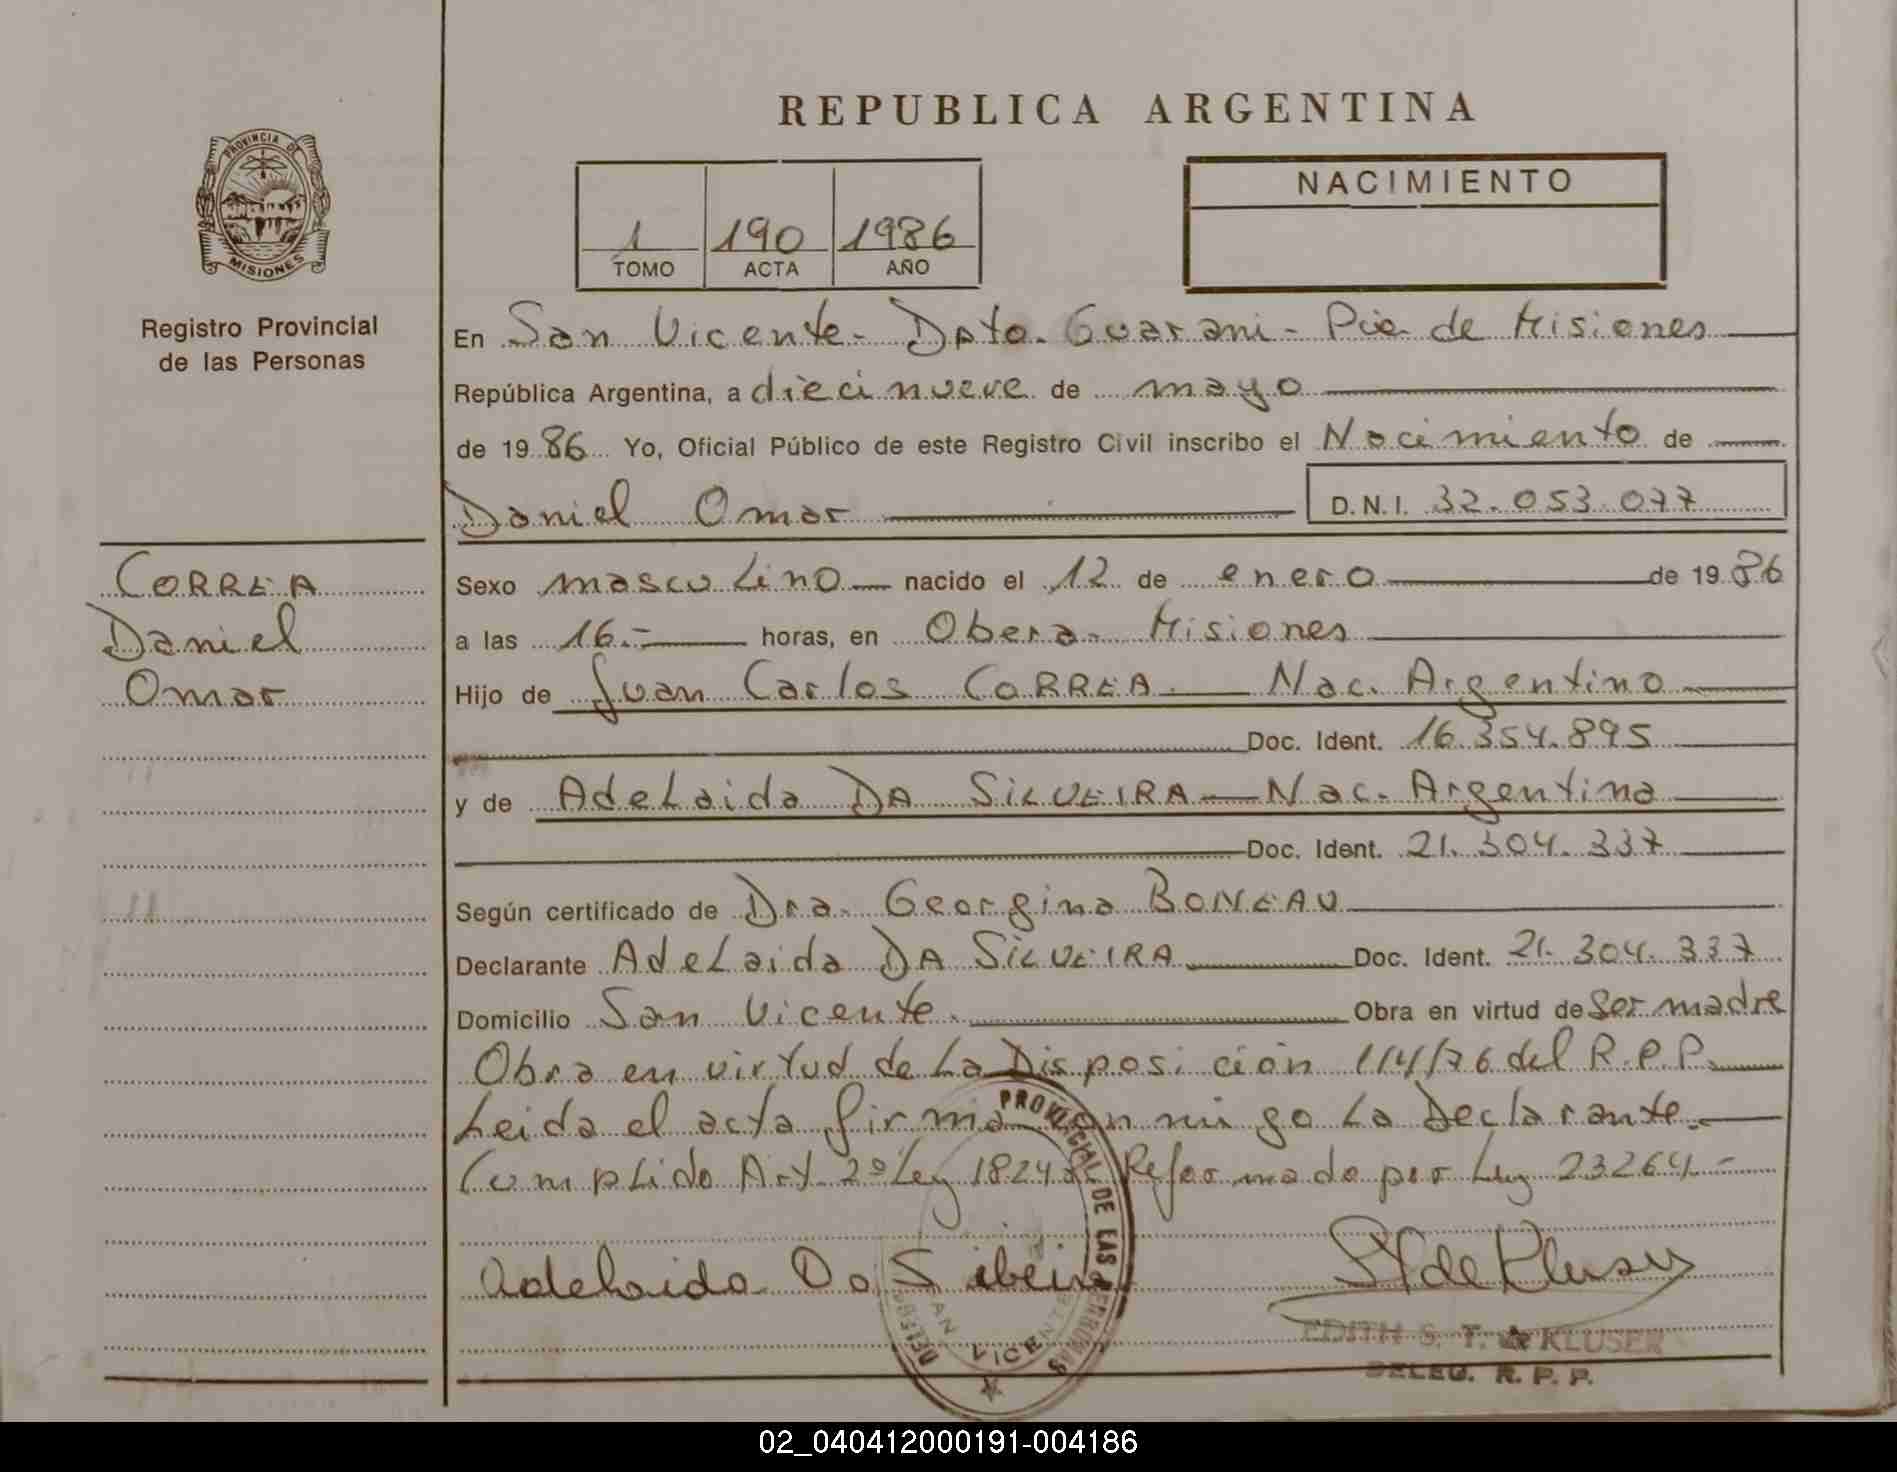 REPUBLICA ARGENTINA
PROVINCIA DE
MISIONES
Registro Provincial
de las Personas
1 190 1986
TOMO ACTA AÑO
NACIMIENTO
En San Vicente - Dpto. Guarani - Pcia de Misiones
República Argentina, a diecinueve de mayo
de 19 86 Yo, Oficial Público de este Registro Civil inscribo el Nacimiento de
Daniel Omar D.N.I. 32.053.077
CORREA
Daniel
Omar
Sexo masculino nacido el 12 de enero de 19 86
a las 16.- horas, en Obera - Misiones
Hijo de Juan Carlos CORREA. Nac. Argentino
Doc. Ident. 16.354.895
y de Adelaida DA SILVEIRA - Nac. Argentina
Doc. Ident. 21.304.337
Según certificado de Dra. Georgina BONEAU
Declarante Adelaida DA SILVEIRA Doc. Ident. 21.304.337
Domicilio San Vicente. Obra en virtud de ser madre
Obra en virtud de La Disposición 114/76 del R.P.P.
Leida el acta firma conmigo La Declarante.-
Cumplido Art. 2º Ley 18248 Reformado por Ley 23264.-
Adelaida Da Silbeira
PROVINCIAL DE LAS PERSONAS
SAN VICENTE
EDITH S. T. de KLUSER
DELEG. R. P. P.
02_040412000191-004186